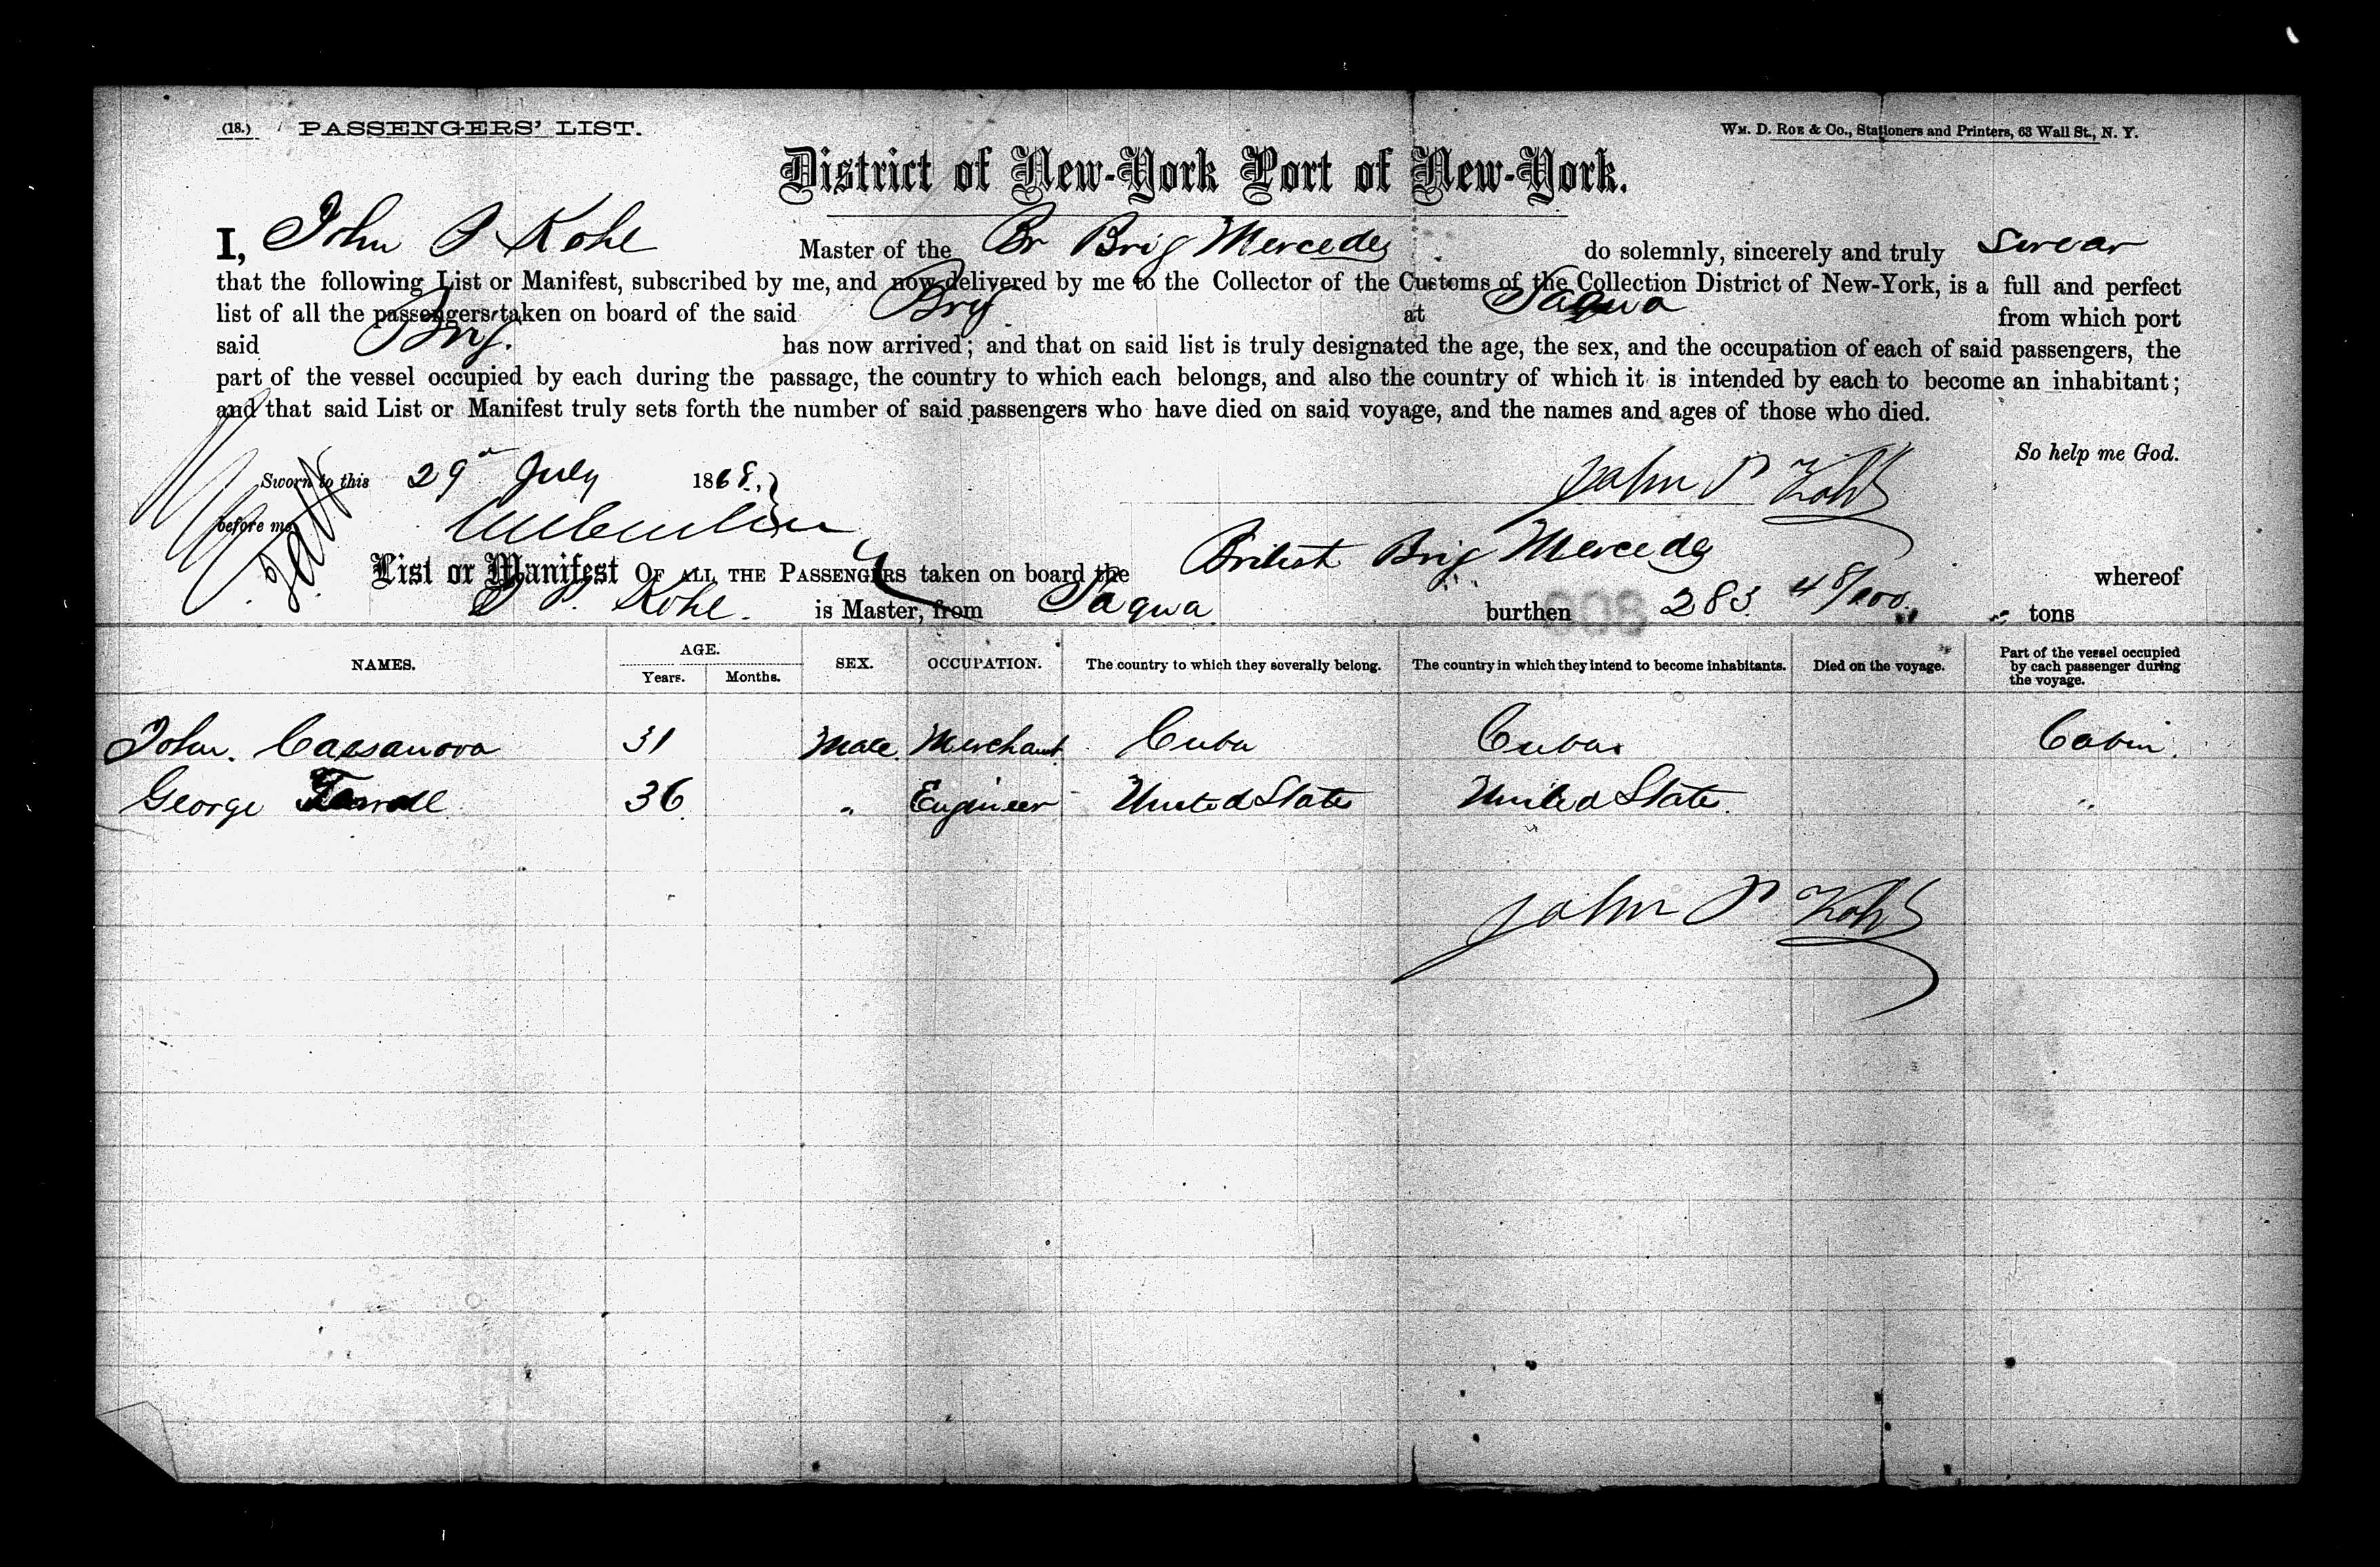 (18.) PASSENGERS' LIST.
WM. D. ROE & Co., Stationers and Printers, 63 Wall St., N. Y.
District of New-York Port of New-York.
I, John P Kohl Master of the Br Brig Mercedes do solemnly, sincerely and truly Swear
that the following List or Manifest, subscribed by me, and now delivered by me to the Collector of the Customs of the Collection District of New-York, is a full and perfect
list of all the passengers taken on board of the said Brig at Sagua from which port
said Brig. has now arrived; and that on said list is truly designated the age, the sex, and the occupation of each of said passengers, the
part of the vessel occupied by each during the passage, the country to which each belongs, and also the country of which it is intended by each to become an inhabitant;
and that said List or Manifest truly sets forth the number of said passengers who have died on said voyage, and the names and ages of those who died.
So help me God.
Sworn to this 29 July 1868,
John P Kohl
before me
List or Manifest OF ALL THE PASSENGERS taken on board the British Brig Mercedes whereof
J P. Kohl. is Master, from Sagua burthen 283 48/100 tons
NAMES. AGE. Years. Months. SEX. OCCUPATION. The country to which they severally belong. The country in which they intend to become inhabitants. Died on the voyage. Part of the vessel occupied by each passenger during the voyage.
John. Cassanova 31 Male. Merchant Cuba Cuba. Cabin.
George 36 " Engineer United States United States. "
John P Kohl